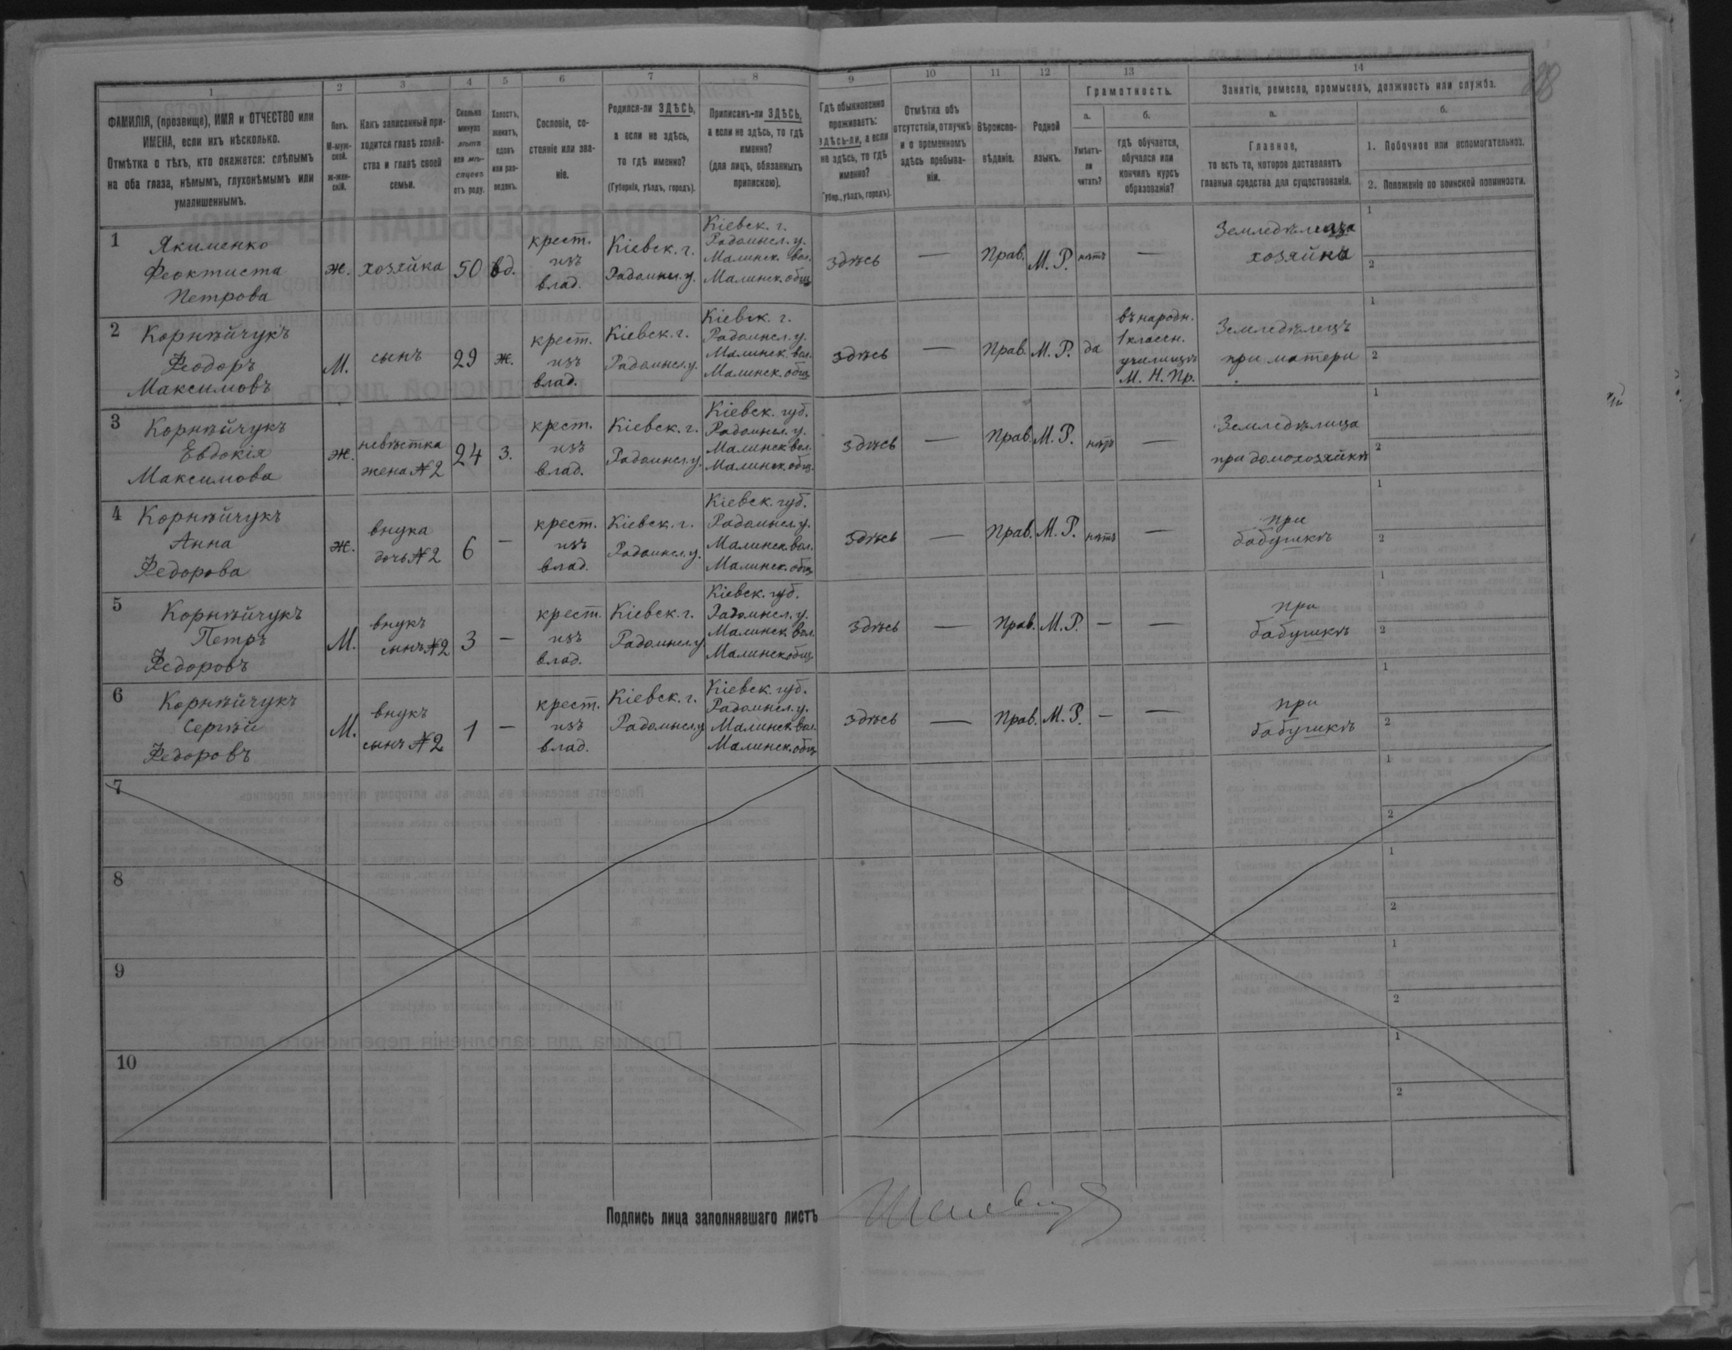 1
2
3
4
5
6
7
8
9
10
11
12
13
14
ФАМИЛІЯ, (прозвище), ИМЯ и ОТЧЕСТВО или
ИМЕНА, если ихъ нѣсколько.
Отмѣтка о тѣхъ, кто окажется: слѣпымъ
на оба глаза, нѣмымъ, глухонѣмымъ или
умалишеннымъ.
Полъ.
М-муж-
ской.
Ж-жен-
скій.
Какъ записанный при-
ходится главѣ хозяй-
ства и главѣ своей
семьи.
Сколько
минуло
лѣтъ
или мѣ-
сяцевъ
отъ роду.
Холостъ,
женатъ,
вдовъ
или раз-
веденъ.
Сословіе, со-
стояніе или зва-
ніе.
Родился-ли ЗДѢСЬ,
а если не здѣсь,
то гдѣ именно?
(Губернія, уѣздъ, городъ).
Приписанъ-ли ЗДѢСЬ,
а если не здѣсь, то гдѣ
именно?
(для лицъ, обязанныхъ
припискою).
Гдѣ обыкновенно
проживаетъ:
здѣсь-ли, а если
не здѣсь, то гдѣ
именно?
(Губер., уѣздъ, городъ).
Отмѣтка объ
отсутствіи, отлучкѣ
и о временномъ
здѣсь пребыва-
ніи.
Вѣроиспо-
вѣданіе.
Родной
языкъ.
Грамотность.
а.
Умѣетъ-
ли
читать?
б.
гдѣ обучается,
обучался или
кончилъ курсъ
образованія?
Занятіе, ремесло, промыселъ, должность или служба.
а.
Главное,
то есть то, которое доставляетъ
главныя средства для существованія.
б.
1. Побочное или вспомогательное.
2. Положеніе по воинской повинности.
1 Якименко
Феоктиста
Петрова
ж.
хозяйка
50
вд.
крест.
изъ
влад.
Кіевск. г.
Радомысл. у.
Кіевск. г.
Радомысл. у.
Малинск. вол.
Малинск. общ.
здѣсь
—
Прав.
М. Р.
нѣтъ
—
Земледѣлица
хозяйка
1
2
2 Корнѣйчукъ
Ѳеодоръ
Максимовъ
М.
сынъ
29
ж.
крест.
изъ
влад.
Кіевск. г.
Радомысл. у.
Кіевск. г.
Радомысл. у.
Малинск. вол.
Малинск. общ.
здѣсь
—
Прав.
М. Р.
да
въ народн.
1 классн.
училищѣ
М. Н. Пр.
Земледѣлецъ
при матери
1
2
3 Корнѣйчукъ
Евдокія
Максимова
ж.
невѣстка
жена №2
24
з.
крест.
изъ
влад.
Кіевск. г.
Радомысл. у.
Кіевск. губ.
Радомысл. у.
Малинск. вол.
Малинск. общ.
здѣсь
—
Прав.
М. Р.
нѣтъ
—
Земледѣлица
при домохозяйкѣ
1
2
4 Корнѣйчукъ
Анна
Ѳедорова
ж.
внука
дочь №2
6
—
крест.
изъ
влад.
Кіевск. г.
Радомысл. у.
Кіевск. губ.
Радомысл. у.
Малинск. вол.
Малинск. общ.
здѣсь
—
Прав.
М. Р.
нѣтъ
—
при
бабушкѣ
1
2
5 Корнѣйчукъ
Петръ
Ѳедоровъ
М.
внукъ
сынъ №2
3
—
крест.
изъ
влад.
Кіевск. г.
Радомысл. у.
Кіевск. губ.
Радомысл. у.
Малинск. вол.
Малинск. общ.
здѣсь
—
Прав.
М. Р.
—
—
при
бабушкѣ
1
2
6 Корнѣйчукъ
Сергѣй
Ѳедоровъ
М.
внукъ
сынъ №2
1
—
крест.
изъ
влад.
Кіевск. г.
Радомысл. у.
Кіевск. губ.
Радомысл. у.
Малинск. вол.
Малинск. общ.
здѣсь
—
Прав.
М. Р.
—
—
при
бабушкѣ
1
2
7
1
2
8
1
2
9
1
2
10
1
2
Подпись лица заполнявшаго листъ